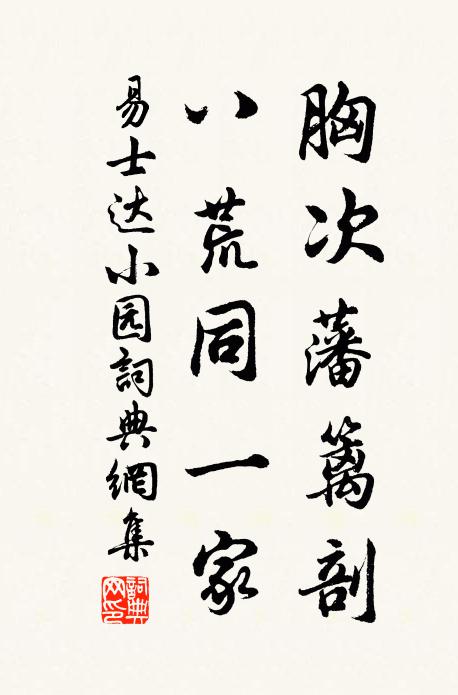 胸次藩篱剖
八荒同一家
易士达小园詞典網集
詞典网印